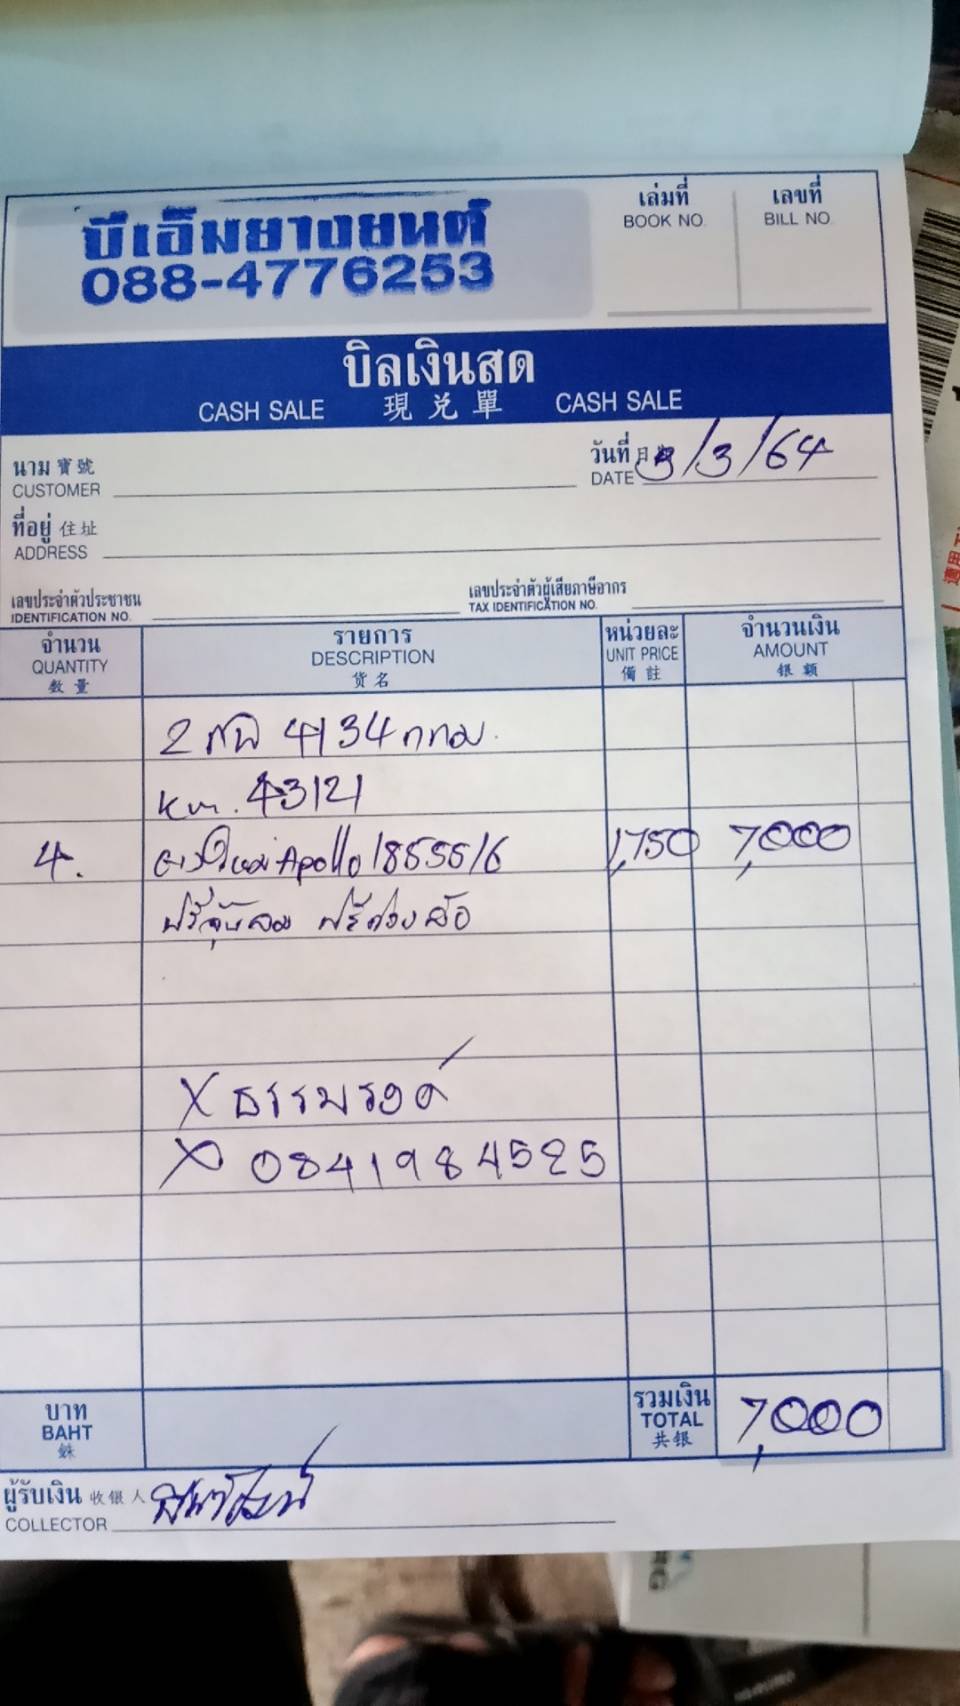 บีเอ็มยางยนต์
088-4776253
เล่มที่
BOOK NO.
เลขที่
BILL NO.
บิลเงินสด
CASH SALE 現兌單 CASH SALE
นาม 寶號
CUSTOMER
วันที่ 日 3/3/64
DATE
ที่อยู่ 住址
ADDRESS
เลขประจำตัวประชาชน
IDENTIFICATION NO.
เลขประจำตัวผู้เสียภาษีอากร
TAX IDENTIFICATION NO.
จำนวน
QUANTITY
数量
รายการ
DESCRIPTION
货名
หน่วยละ
UNIT PRICE
備註
จำนวนเงิน
AMOUNT
银额
4134 กทม.
km. 43121
4. Apollo 1855516 1,750 7,000
ฟรี
X ธรรมรงค์
X 0841984525
บาท
BAHT
銖
รวมเงิน
TOTAL
共银
7,000
ผู้รับเงิน 收银人
COLLECTOR
RG